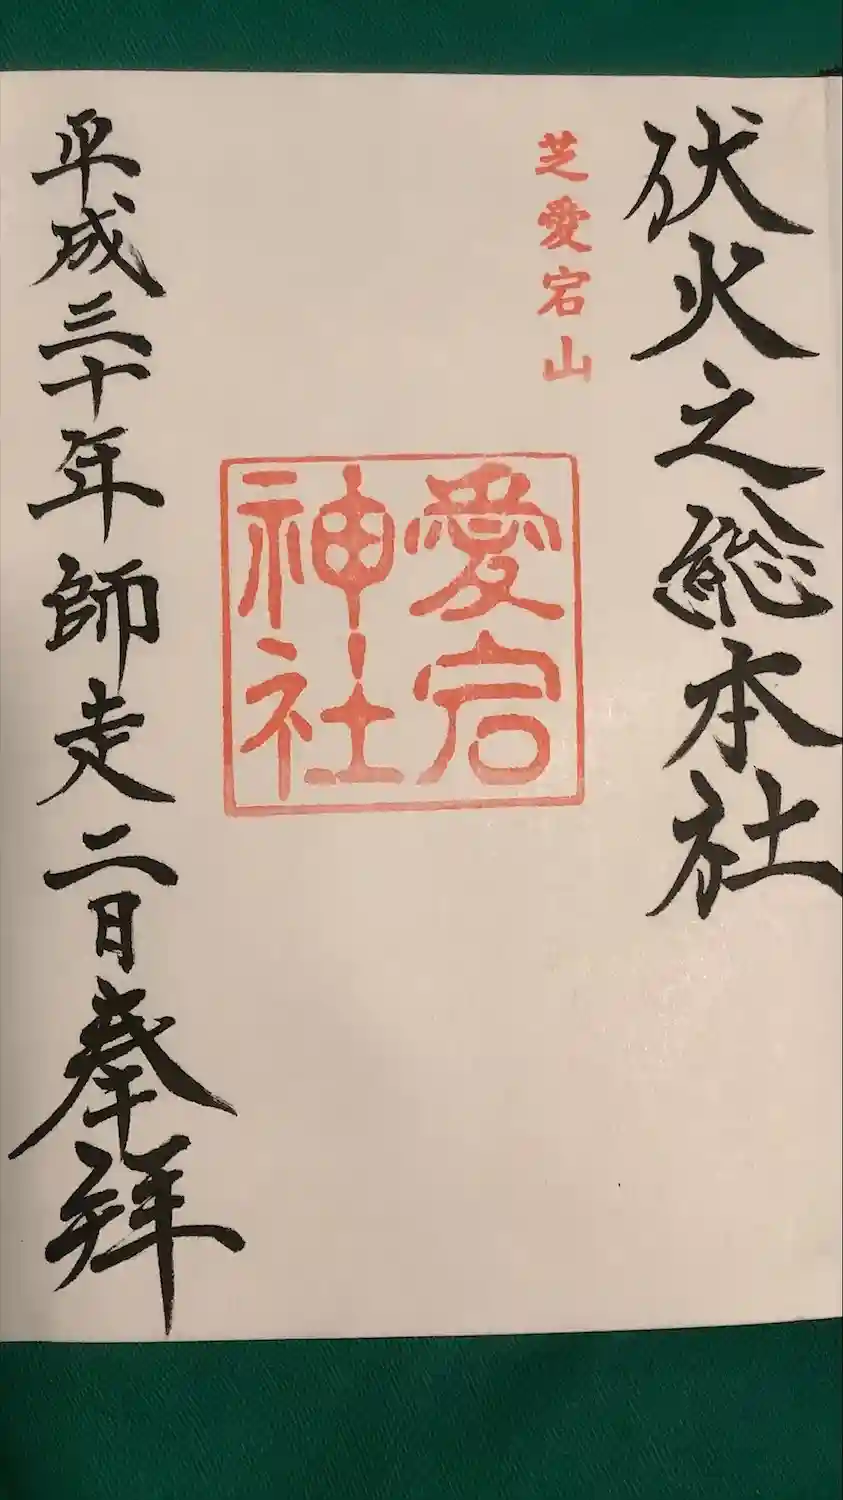 伏火之総本社
芝愛宕山
愛宕
神社
平成三十年師走二日奉拝